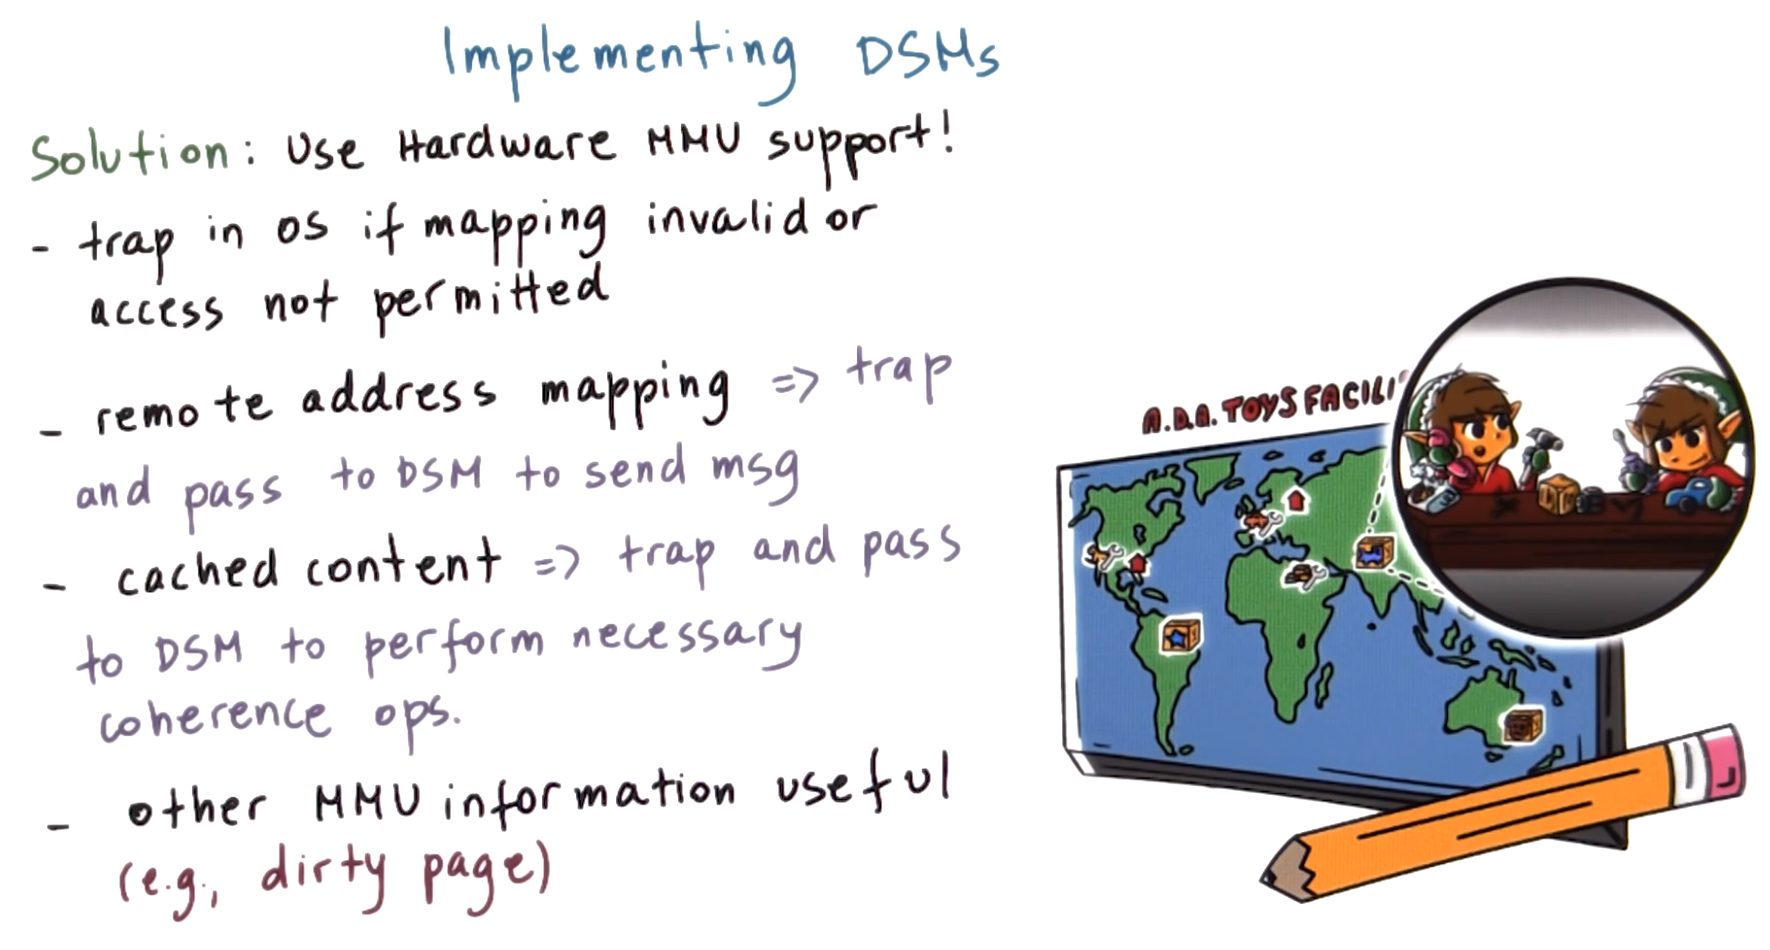 Implementing DSMs
Solution: Use Hardware MMU support!
- trap in OS if mapping invalid or
access not permitted
- remote address mapping => trap
and pass to DSM to send msg
- cached content => trap and pass
to DSM to perform necessary
coherence ops.
- other MMU information useful
(e.g., dirty page)
A.D.A. TOYS FACILI